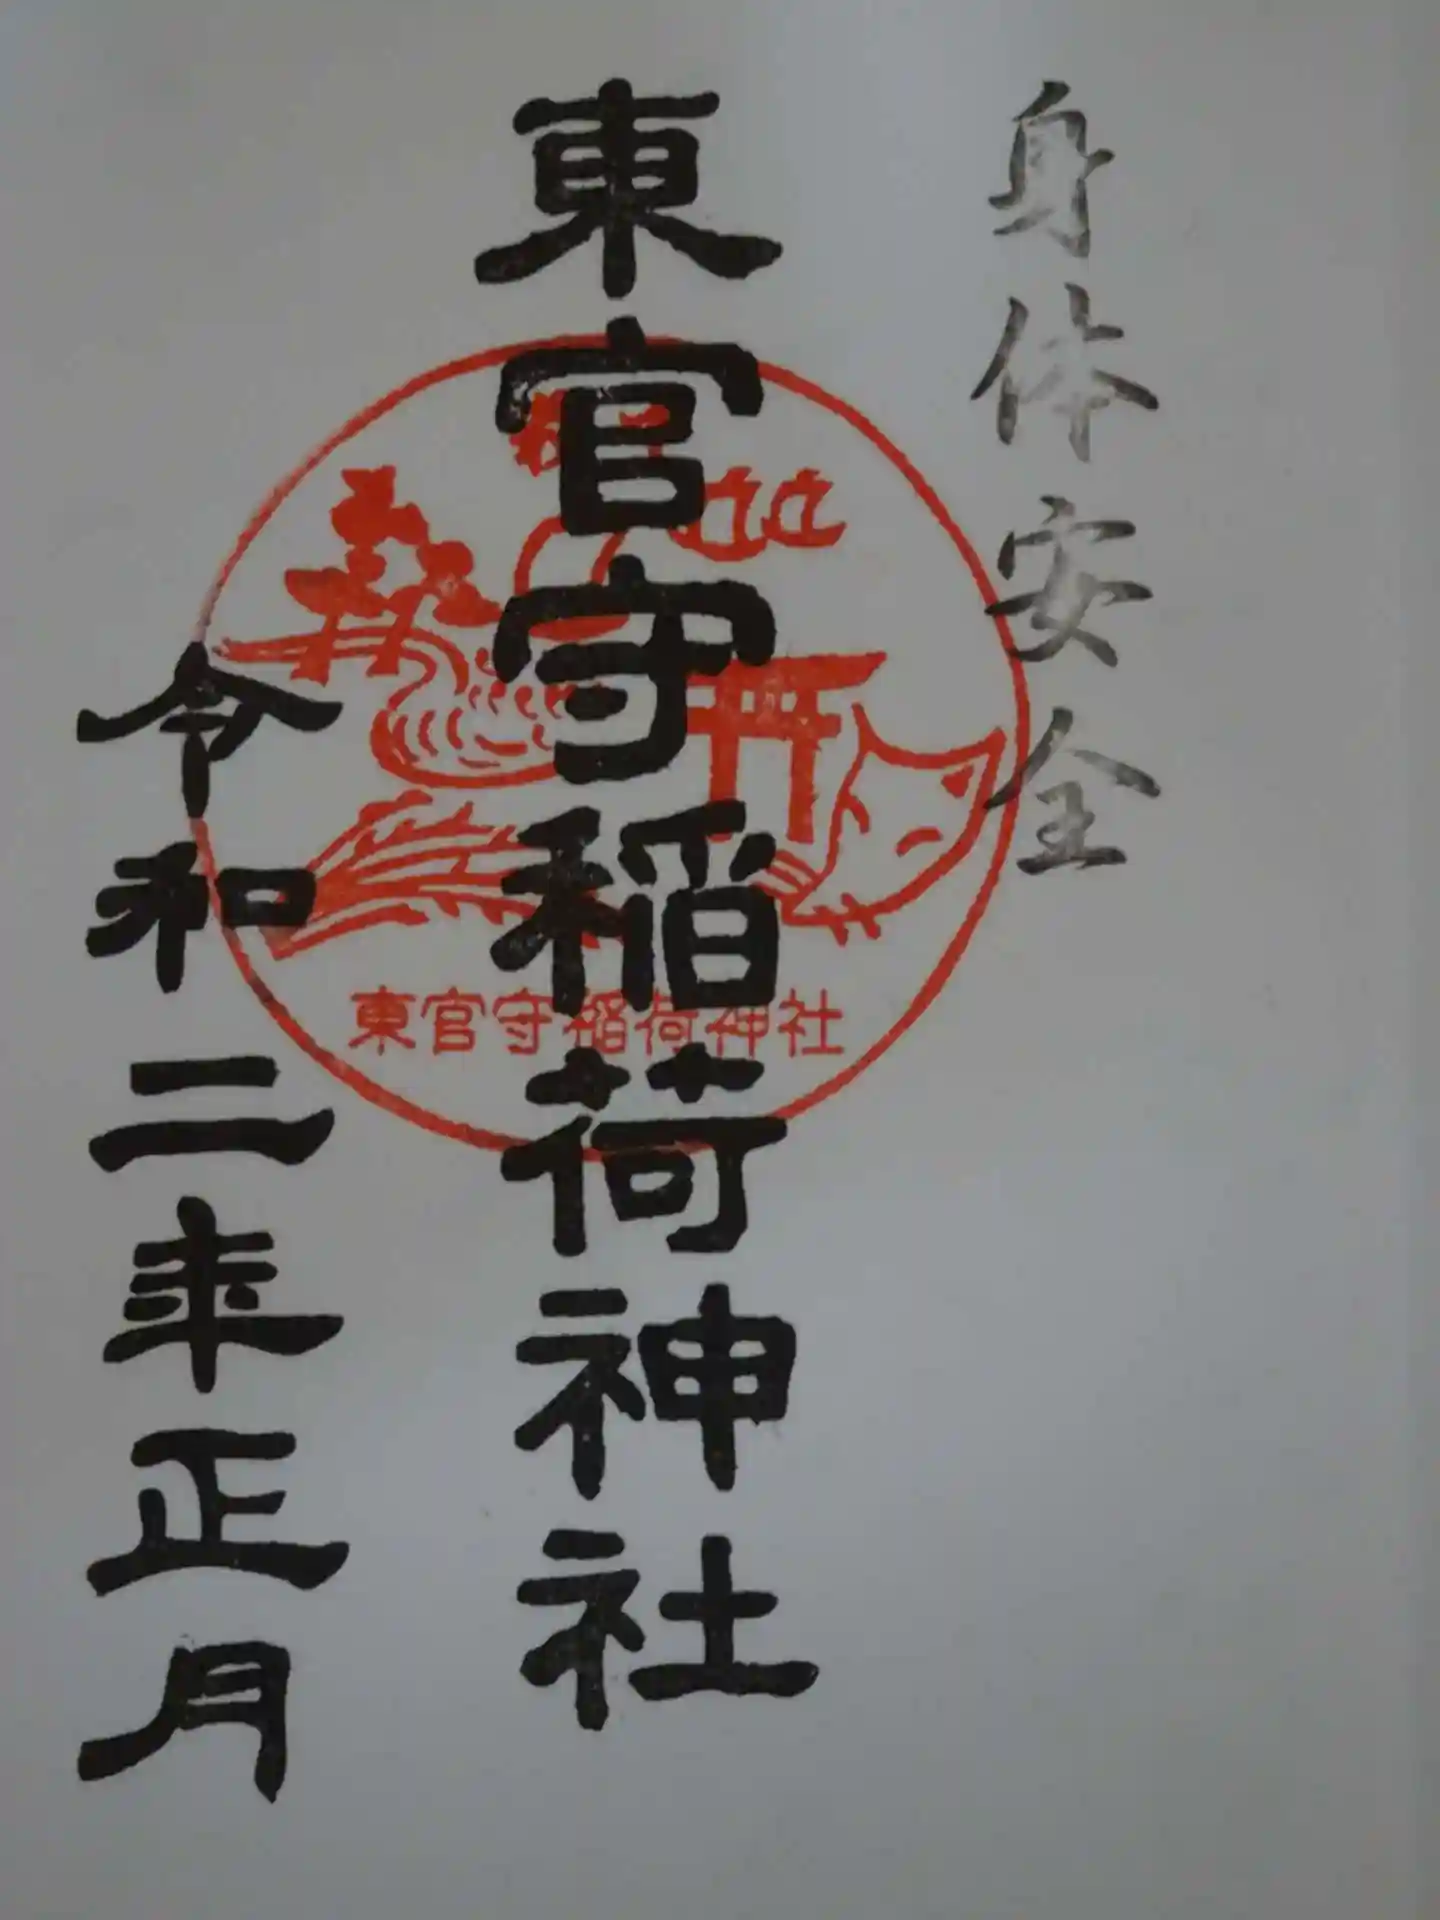 身体安全
東官守稲荷神社
東官守稲荷神社
令和二年正月